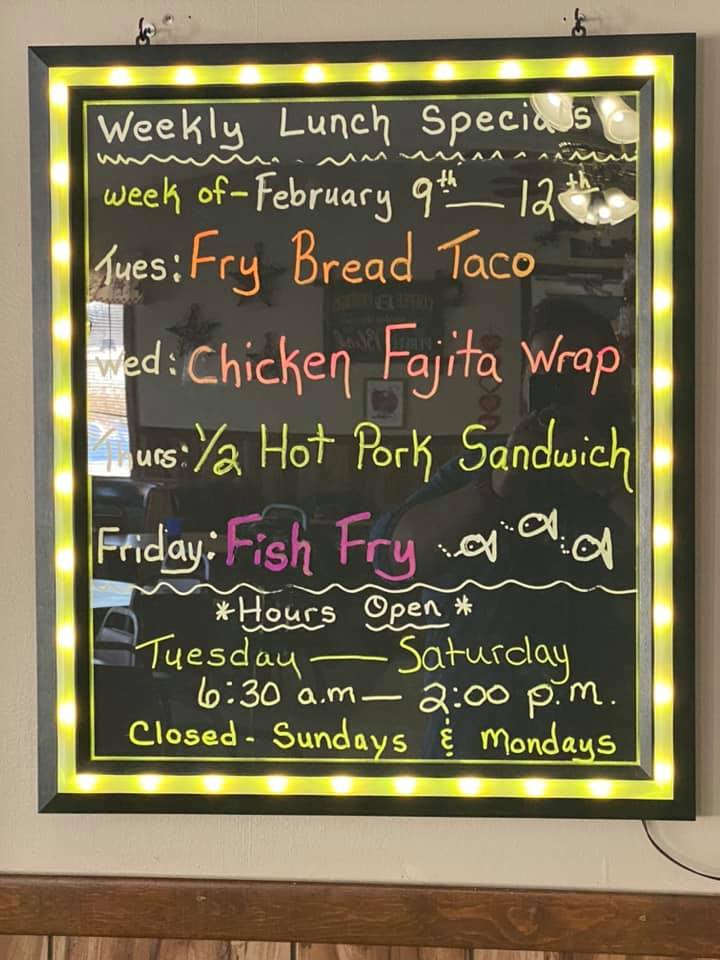 Weekly Lunch Specials
week of - February 9th — 12th
Tues: Fry Bread Taco
Wed: Chicken Fajita Wrap
Thurs: 1/2 Hot Pork Sandwich
Friday: Fish Fry
*Hours Open*
Tuesday — Saturday
6:30 a.m — 2:00 p.m.
Closed - Sundays & Mondays